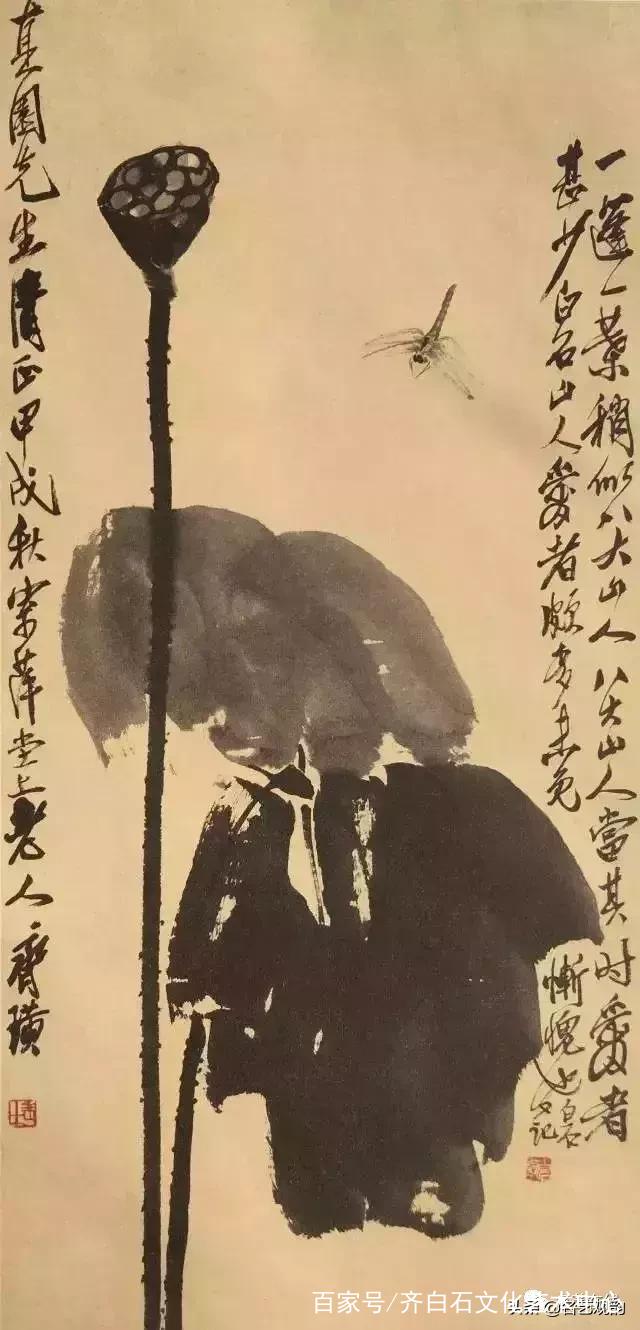 一蓬一葉稍似八大山人八大山人當其时愛者
甚少白石山人愛者頗多未免
慚愧也白石又記
其園先生清正甲戌秋寄萍堂上老人齊璜
百家号/齐白石文化
头条